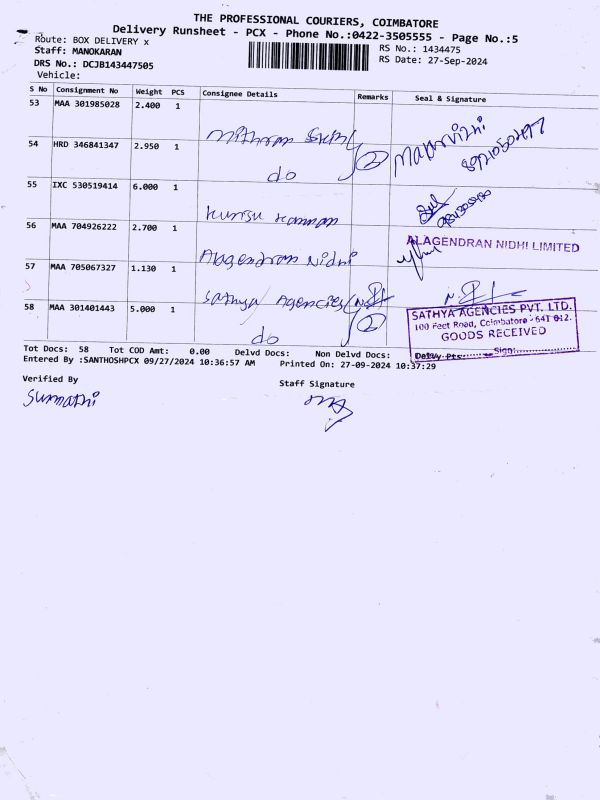 THE PROFESSIONAL COURIERS, COIMBATORE
Delivery Runsheet - PCX - Phone No.:0422-3505555 - Page No.:5
Route: BOX DELIVERY x
RS No.: 1434475
Staff: MANOKARAN
RS Date: 27-Sep-2024
DRS No.: DCJB143447505
Vehicle:
S No Consignment No Weight PCS Consignee Details Remarks Seal & Signature
53 MAA 301985028 2.400 1
54 HRD 346841347 2.950 1 do 2
55 IXC 530519414 6.000 1
56 MAA 704926222 2.700 1 Alagendran Nidhi
ALAGENDRAN NIDHI LIMITED
57 MAA 705067327 1.130 1 Sathya Agencies
58 MAA 301401443 5.000 1 do 2
SATHYA AGENCIES PVT. LTD.
100 Feet Road, Coimbatore - 641 012.
GOODS RECEIVED
Tot Docs: 58 Tot COD Amt: 0.00 Delvd Docs: Non Delvd Docs: Delvy Pts:
Sign:
Entered By :SANTHOSHPCX 09/27/2024 10:36:57 AM Printed On: 27-09-2024 10:37:29
Verified By
Staff Signature
Sumathi